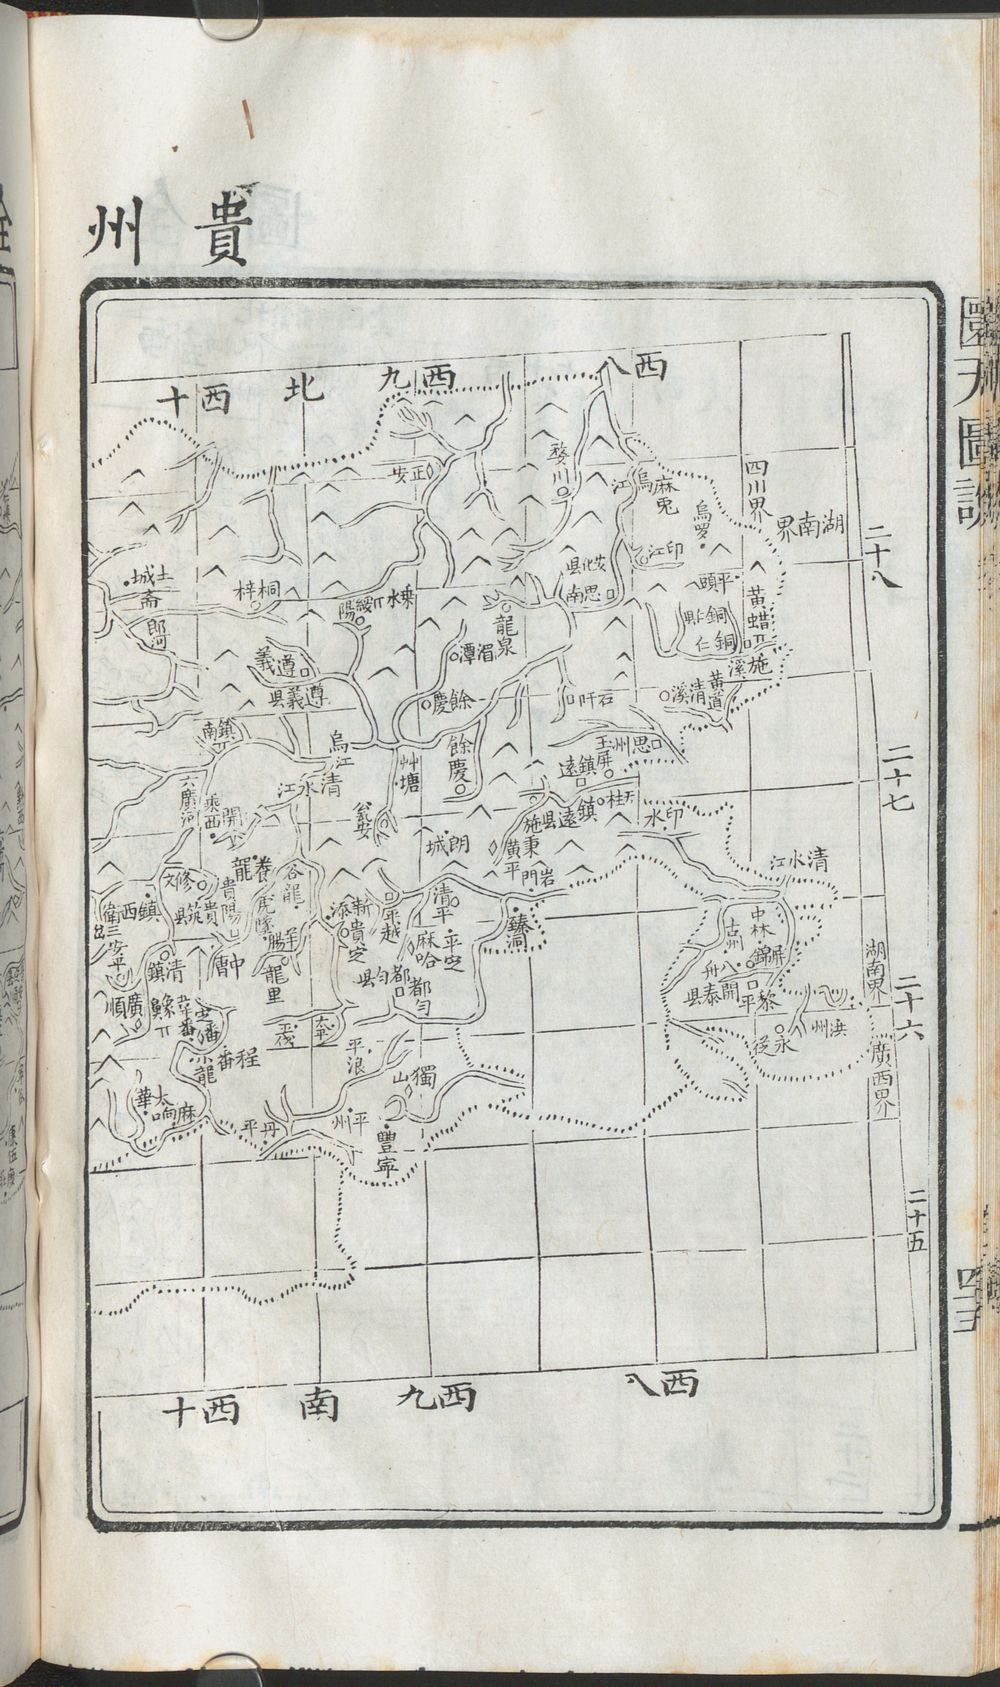 貴州
西八
西九
北
西十
二十八
二十七
二十六
二十五
四川界
湖南界
湖南界
廣西界
正安
婺川
烏江
麻兎
烏羅
印江
平頭
黃蜡
土城
桐梓
綏陽
思南
龍泉
湄潭
銅仁
施溪
遵義
遵義县
餘慶
石阡
清溪
黃道
鎮南
烏江
餘慶
思州
玉屏
鎮遠
清水江
草塘
天柱
六廣河
乘西
開
瓮安
鎮遠县
施秉
印水
朗城
黃平
岩門
清水江
養龍
谷龍
修文
貴陽
貴筑县
虎墜
新添
貴定
平越
清平
麻哈
平定
臻洞
中林
古州
鎮西衛
安平
清鎮
中曹
龍里
都勻
都勻县
八舟
錦屏
開泰县
黎平
廣順
平伐
平浪
洪州
永從
程番
小龍
獨山
太華
麻响
丹平
平州
豐寧
西八
西九
南
西十